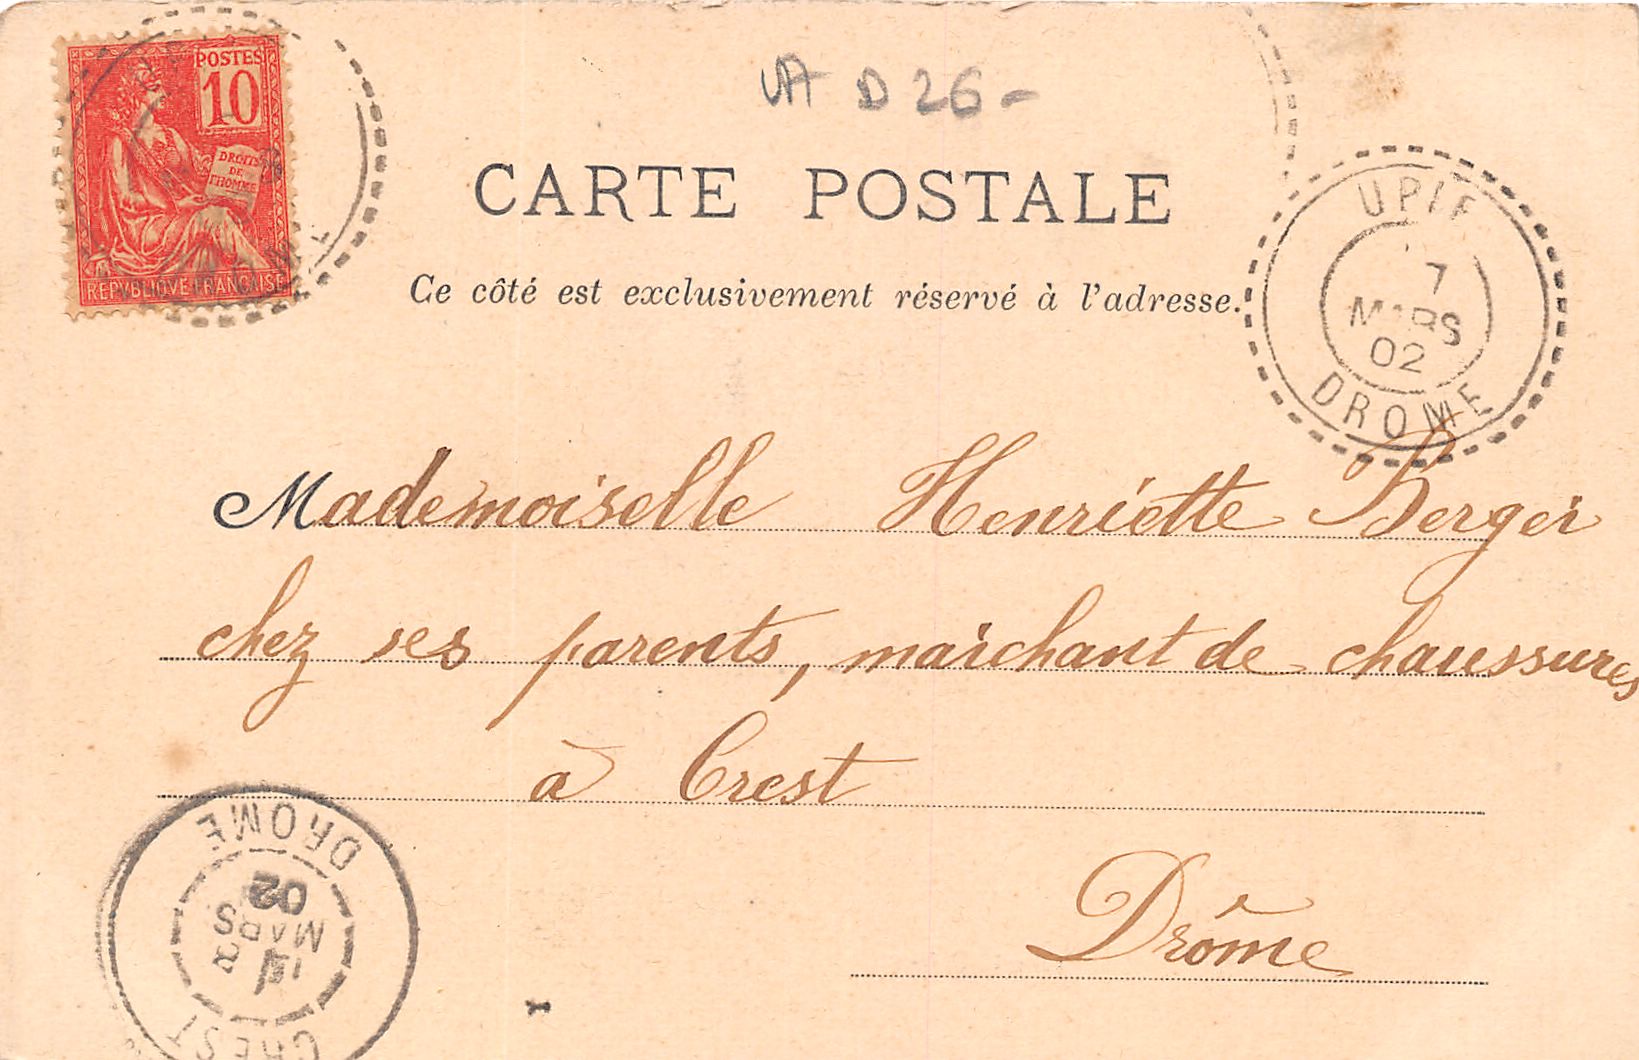 POSTES
10
DROITS
DE
L'HOMME
REPVBLIQVE FRANÇAISE
D 26-
CARTE POSTALE
Ce côté est exclusivement réservé à l'adresse.
UPIE
7
MARS
02
DROME
Mademoiselle Henriette Berger
chez ses parents, marchant de chaussures
à Crest
Drôme
DROME
02
MARS
8
CREST